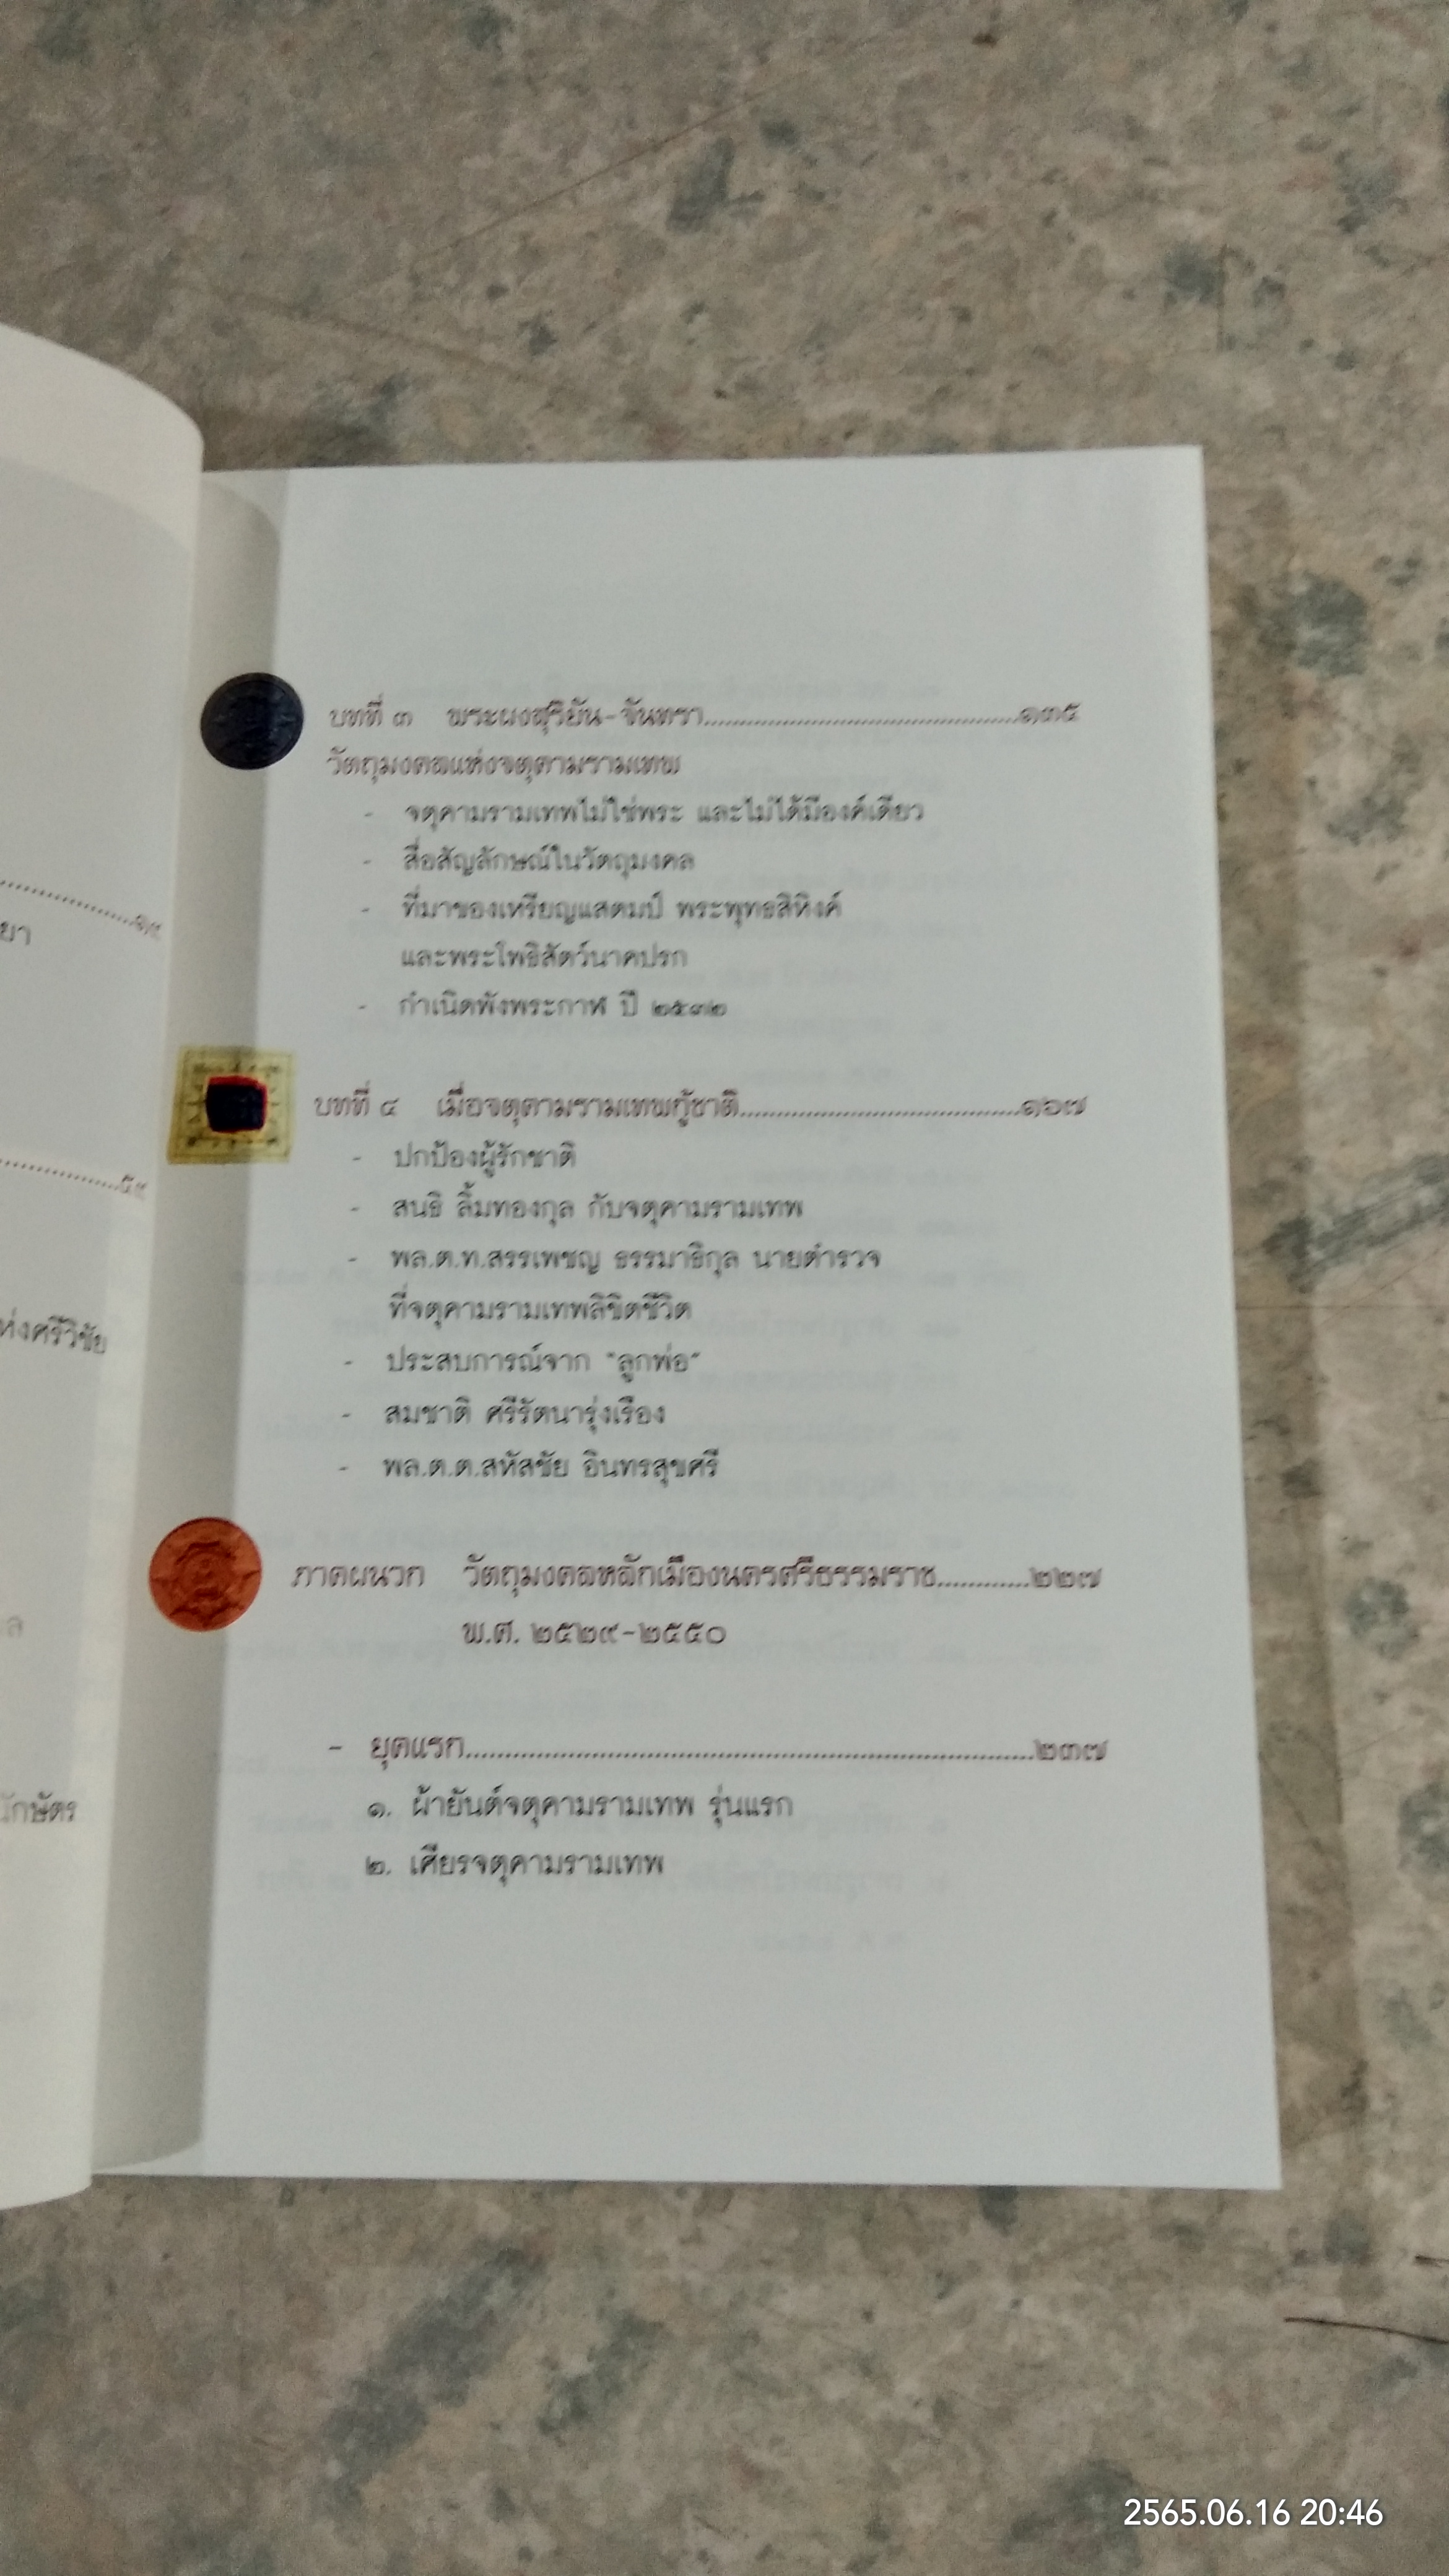 ยา
ห่งศรีวิชัย
ล
นักษัตร
บทที่ ๓ พระผงสุริยัน-จันทรา........................................๑๓๕
วัตถุมงคลแห่งจตุคามรามเทพ
- จตุคามรามเทพไม่ใช่พระ และไม่ได้มีองค์เดียว
- สื่อสัญลักษณ์ในวัตถุมงคล
- ที่มาของเหรียญแสตมป์ พระพุทธสิหิงค์
และพระโพธิสัตว์นาคปรก
- กำเนิดพังพระกาฬ ปี ๒๕๓๒
บทที่ ๔ เมื่อจตุคามรามเทพกู้ชาติ........................................๑๖๗
- ปกป้องผู้รักชาติ
- สนธิ ลิ้มทองกุล กับจตุคามรามเทพ
- พล.ต.ท.สรรเพชญ ธรรมาธิกุล นายตำรวจ
ที่จตุคามรามเทพลิขิตชีวิต
- ประสบการณ์จาก "ลูกพ่อ"
- สมชาติ ศรีรัตนารุ่งเรือง
- พล.ต.ต.สหัสชัย อินทรสุขศรี
ภาคผนวก วัตถุมงคลหลักเมืองนครศรีธรรมราช............๒๒๗
พ.ศ. ๒๕๒๙-๒๕๕๐
- ยุคแรก........................................................................๒๓๗
๑. ผ้ายันต์จตุคามรามเทพ รุ่นแรก
๒. เศียรจตุคามรามเทพ
2565.06.16 20:46